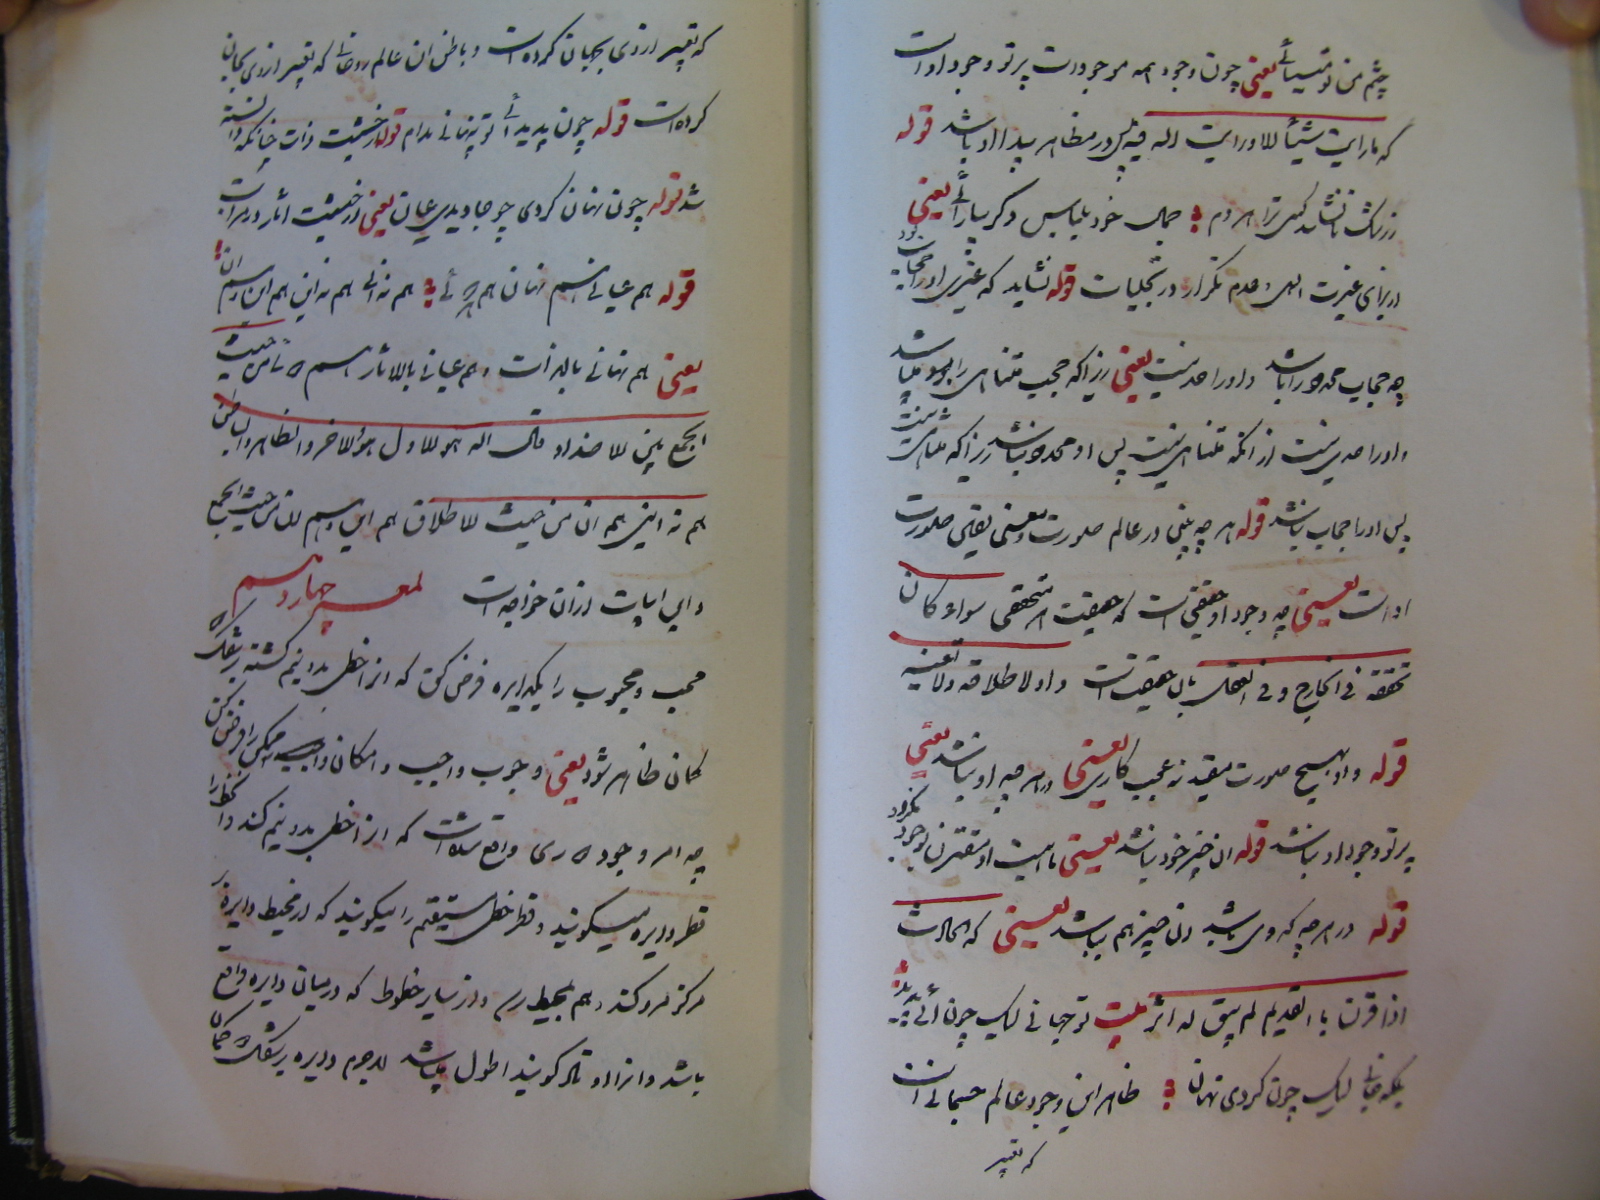 چشم من تو میبینائی یعنی چون وجود همه موجودات پرتو وجود اوست
که ما رایت شیئا الا و رایت الله فیه پس در مظاهر پیدا او باشد قوله
زرنگش تا نشناسد کسی ترا هر دم جمال خود بلباس دگر بیارائی یعنی
از برای غیرت الهی و عدم تکرار در تجلیات قوله نشاید که غیری او را حجاب بود
چه حجاب محدود را باشد و او را حد نیست یعنی زیرا که حجب متناهی را باشد
و او را حدی نیست از آنکه متناهی نیست پس او محدود نباشد زیرا که متناهی نیست
پس او را حجاب نباشد قوله هر چه بینی در عالم صورت و معنی یعنی صورت
اوست یعنی چه وجود او حقیقی است که حقیقت هر متحققی سواء کان
تحققه فی الخارج و فی العقل بان حقیقت است و او لاطلاقه و لا تعینه
قوله و او بهیچ صورت مقید نه عجب کاری یعنی در هر چه او نباشد یعنی
پرتو وجود او نباشد قوله آن چیز خود نباشد یعنی ماهیت او مقترن بوجود نگردد
قوله در هر چه که وی باشد آن چیز هم نباشد یعنی که الحادث
اذا قرن بالقدیم لم یبق له اثر بیت تو جهانی لیک چون آئی پدید
بلکه جانی لیک چون گردی نهان ظاهر این وجود عالم جسمانی است
که تعبیر
که تعبیر از وی بجهان کرده است و باطن آن عالم روحانی که تعبیر از وی بجان
کرده است قوله چون پدید آئی تو پنهانی مدام قوله از حیثیت ذات چنانکه دانسته
شد قوله چون نهان گردی چو جاویدی عیان یعنی از حیثیت آثار و مراتب
قوله هم عیانی هم نهان هم هر دوئی هم نه آنی هم نه این هم این و هم آن
یعنی هم نهانی بالذات و هم عیانی بالاثار هم هر دو من حیث
الجمع بین الاضداد قال الله هو الاول هو الاخر و الظاهر و الباطن
هم نه اینی هم آن من حیث الاطلاق هم این و هم آن من حیث الجمع
و این ابیات از آن خواجه است لمعه چهاردهم
محب و محبوب را یکدایره فرض کن که از خطی بدو نیم گشته بر شکل دو
کمان ظاهر شود یعنی وجوب واجب و امکان ممکن را فرض کن
چه امر وجود دوری واقع شده است که از خطی بدو نیم کند و آن خط را
قطر دایره میگویند و قطر خطی مستقیم را میگویند که از محیط دایره
مرکز مرور کند و هم بمحیط رسد و از سایر خطوط که در میان دایره واقع
باشد و آنرا اوتار گویند اطول باشد لاجرم دایره بر شکل دو کمان